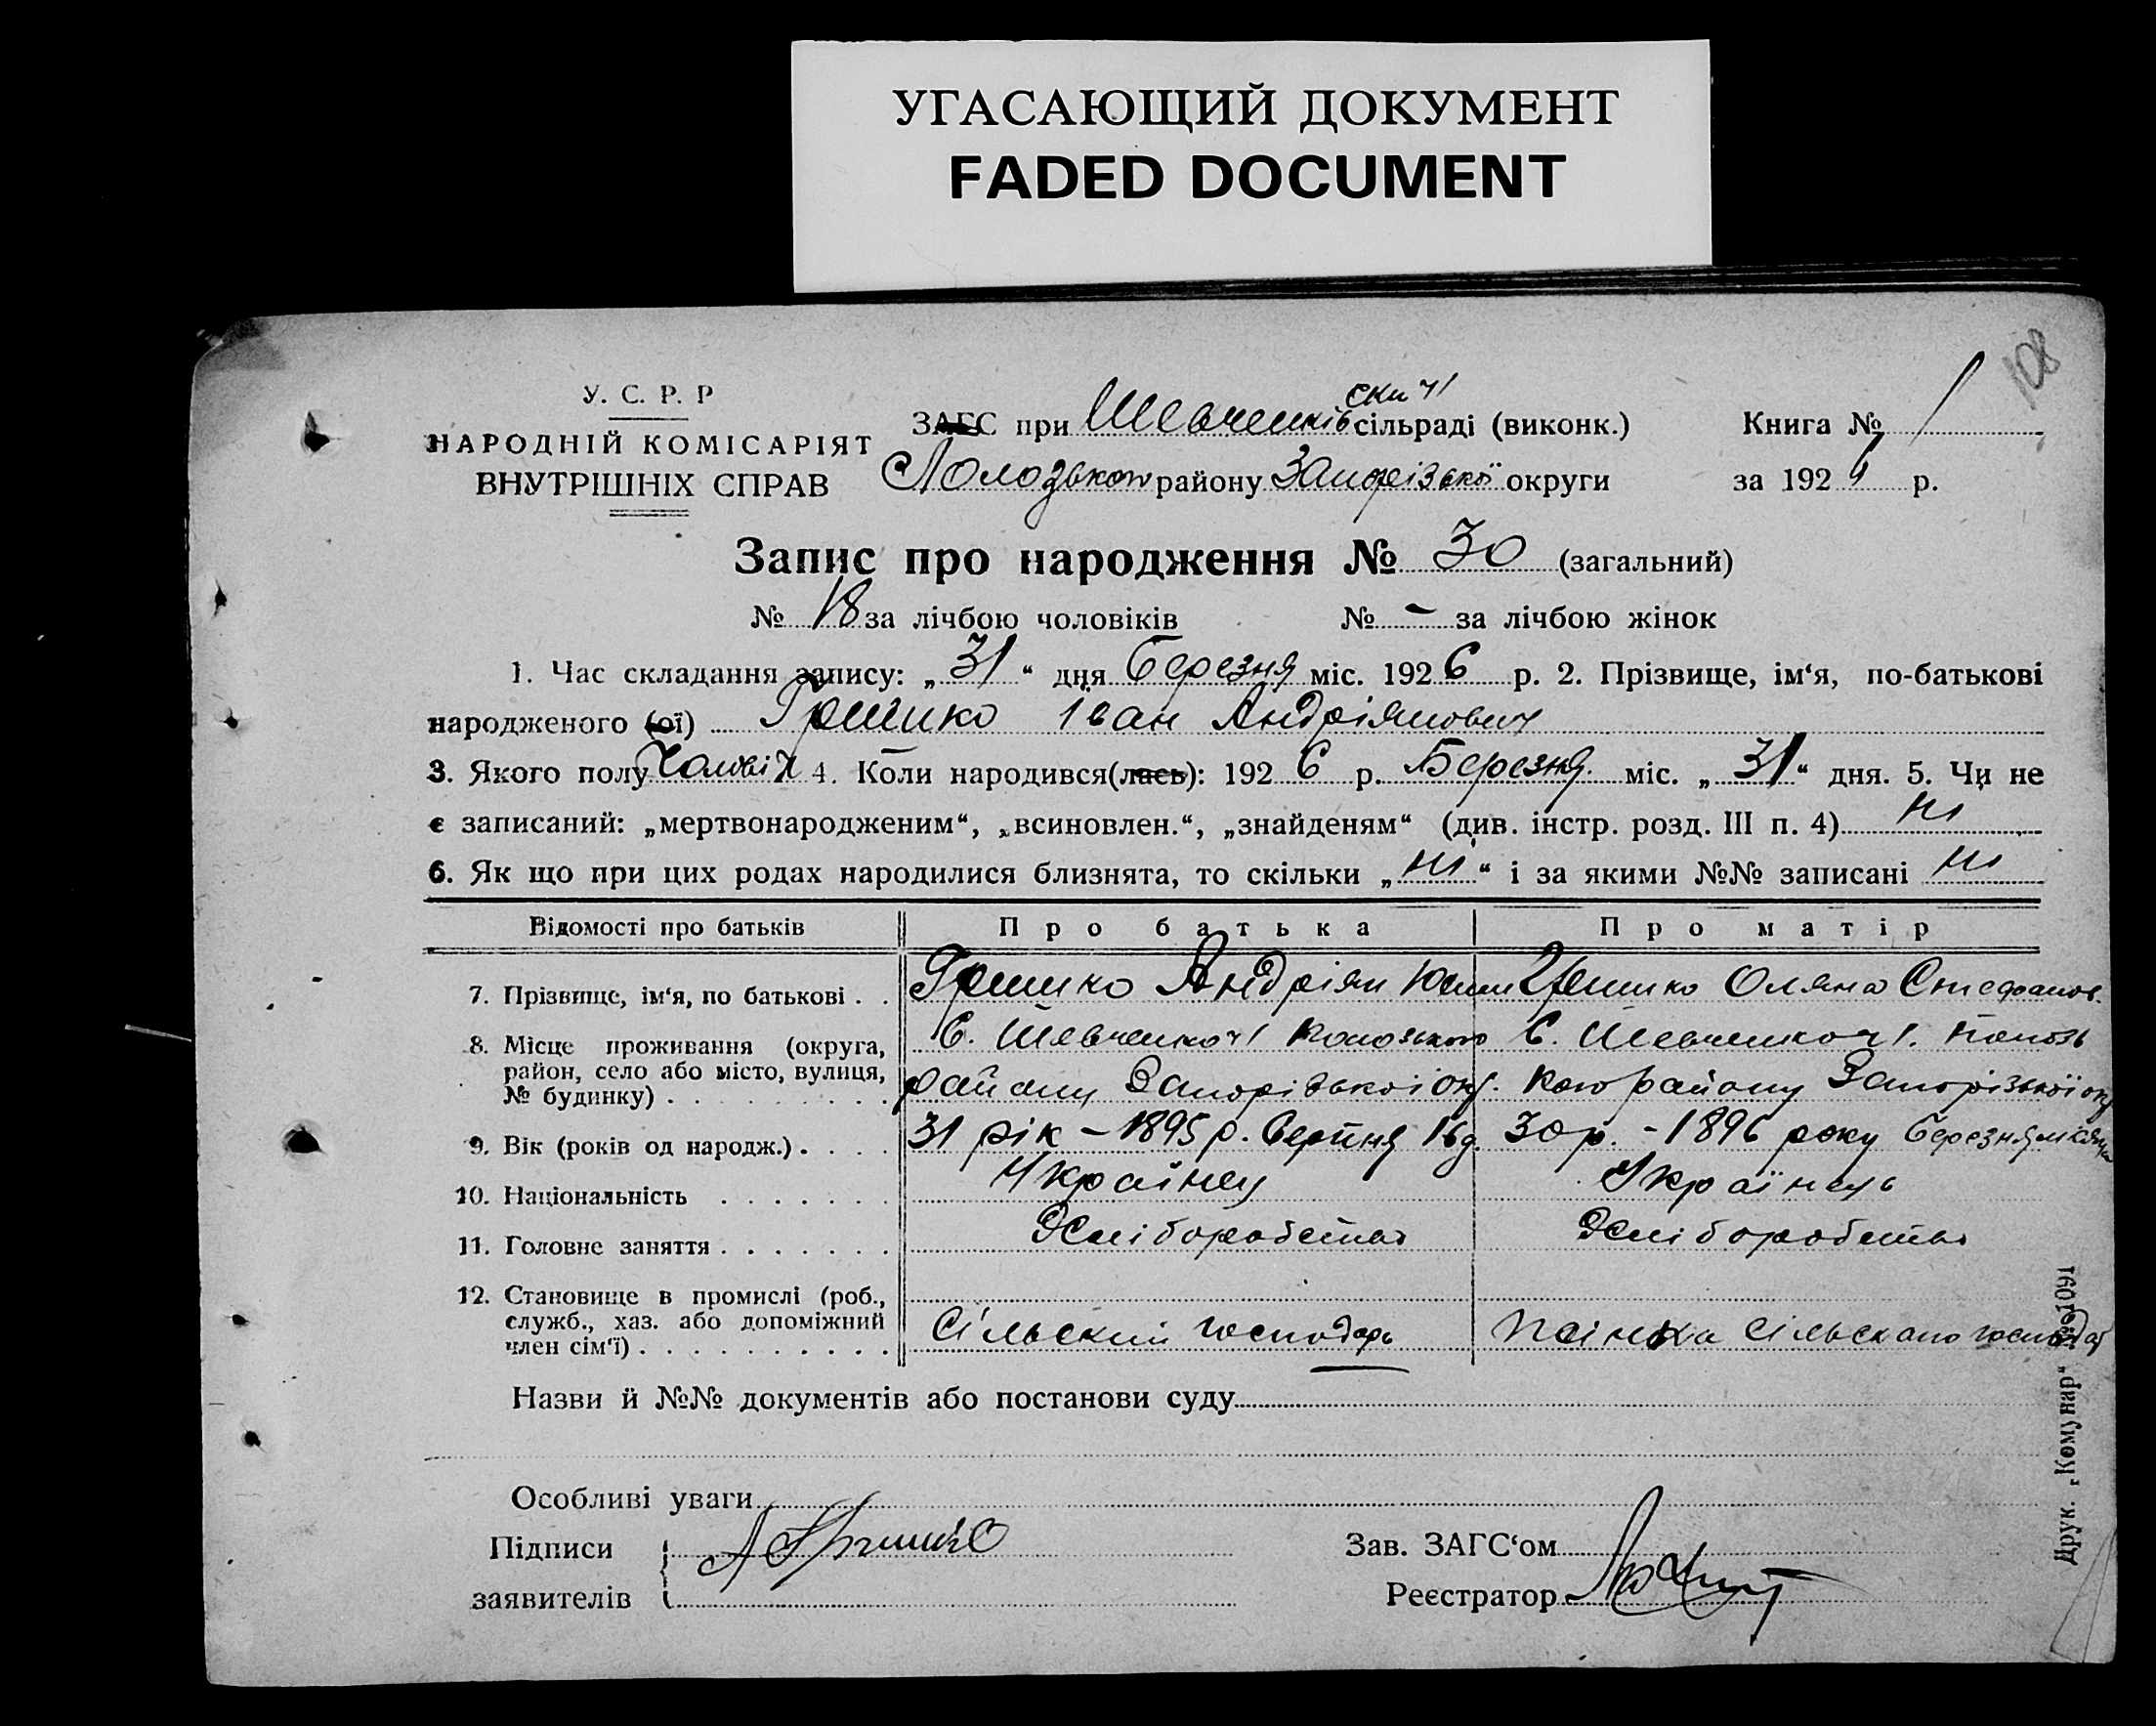 УГАСАЮЩИЙ ДОКУМЕНТ
FADED DOCUMENT
108
У. С. Р. Р
НАРОДНІЙ КОМІСАРІЯТ
ВНУТРІШНІХ СПРАВ
ЗАГС при Шевченківській сільраді (виконк.)
району Запорізької округи
Книга № 1
за 1926 р.
Запис про народження № 30 (загальний)
№ 18 за лічбою чоловіків № – за лічбою жінок
1. Час складання запису: „31“ дня Березня міс. 1926 р. 2. Прізвище, ім‘я, по-батькові
народженого (ої) Гришко Іван Андріянович
3. Якого полу Чоловіч 4. Коли народився(лась): 1926 р. Березня міс. „31“ дня. 5. Чи не
є записаний: „мертвонародженим“, „всиновлен.“, „знайденям“ (див. інстр. розд. III п. 4) ні
6. Як що при цих родах народилися близнята, то скільки „ні“ і за якими №№ записані ні
Відомості про батьків Про батька Про матір
7. Прізвище, ім‘я, по батькові . . Гришко Андріян Гришко Оляна Стефанов.
8. Місце проживання (округа, район, село або місто, вулиця, № будинку) . . . . . . . . .
С. Шевченково
району Запорізької окр.
С. Шевченково
району Запорізької окр
9. Вік (років од народж.) . . . . 31 рік – 1895 р. Серпня 16 д. 30 р. – 1896 року Березня місяця
10. Національність . . . . . . . Українец Українець
11. Головне заняття . . . . . . . Хліборобство Хліборобство
12. Становище в промислі (роб., служб., хаз. або допоміжний член сім‘ї) . . . . . . . . . .
Сільський господарь
жінка сільского господар
Назви й №№ документів або постанови суду
Особливі уваги
Підписи
заявителів
А Гришко
Зав. ЗАГС‘ом
Реєстратор
Друк. „Комунар“ № 1091